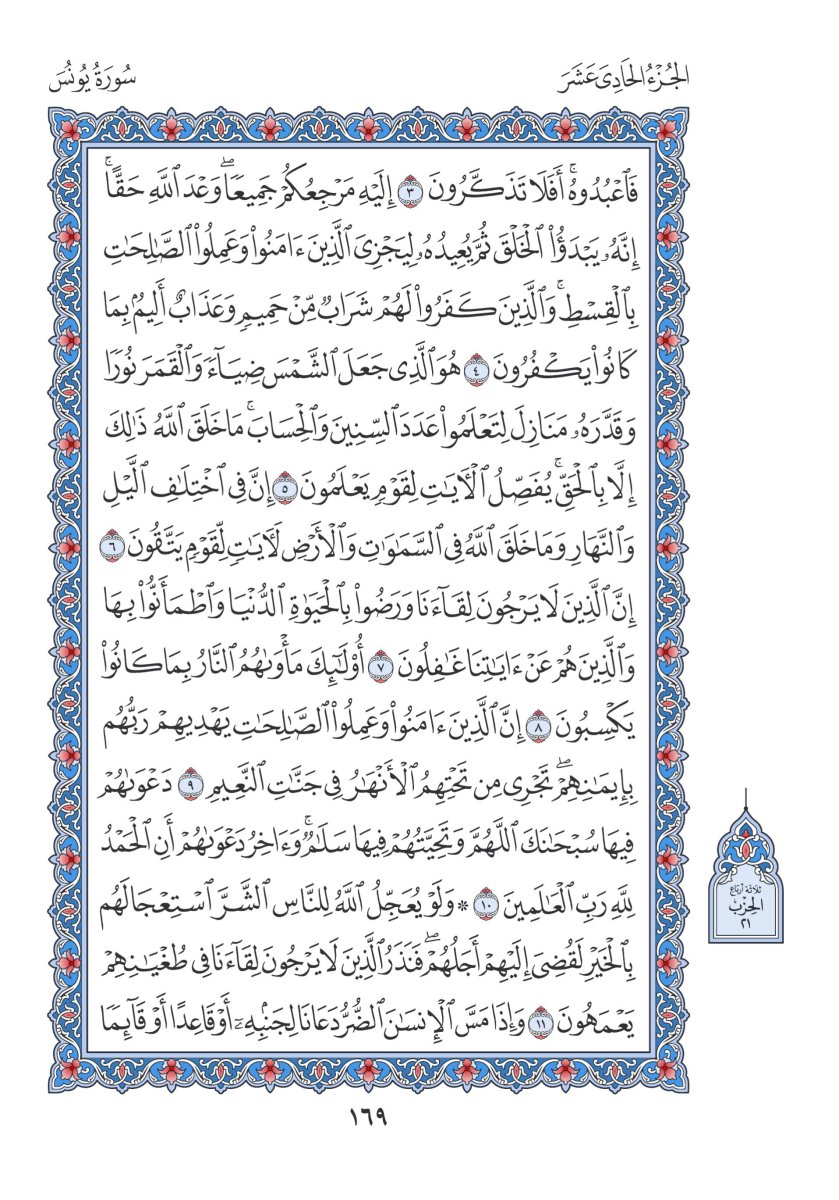 الجُزْءُ الحَادِي عَشَرَ
سُورَةُ يُونُسَ
فَٱعۡبُدُوهُۚ أَفَلَا تَذَكَّرُونَ ٣ إِلَيۡهِ مَرۡجِعُكُمۡ جَمِيعٗاۖ وَعۡدَ ٱللَّهِ حَقًّاۚ
إِنَّهُۥ يَبۡدَؤُاْ ٱلۡخَلۡقَ ثُمَّ يُعِيدُهُۥ لِيَجۡزِيَ ٱلَّذِينَ ءَامَنُواْ وَعَمِلُواْ ٱلصَّٰلِحَٰتِ
بِٱلۡقِسۡطِۚ وَٱلَّذِينَ كَفَرُواْ لَهُمۡ شَرَابٞ مِّنۡ حَمِيمٖ وَعَذَابٌ أَلِيمُۢ بِمَا
كَانُواْ يَكۡفُرُونَ ٤ هُوَ ٱلَّذِي جَعَلَ ٱلشَّمۡسَ ضِيَآءٗ وَٱلۡقَمَرَ نُورٗا
وَقَدَّرَهُۥ مَنَازِلَ لِتَعۡلَمُواْ عَدَدَ ٱلسِّنِينَ وَٱلۡحِسَابَۚ مَا خَلَقَ ٱللَّهُ ذَٰلِكَ
إِلَّا بِٱلۡحَقِّۚ يُفَصِّلُ ٱلۡأٓيَٰتِ لِقَوۡمٖ يَعۡلَمُونَ ٥ إِنَّ فِي ٱخۡتِلَٰفِ ٱلَّيۡلِ
وَٱلنَّهَارِ وَمَا خَلَقَ ٱللَّهُ فِي ٱلسَّمَٰوَٰتِ وَٱلۡأَرۡضِ لَأٓيَٰتٖ لِّقَوۡمٖ يَتَّقُونَ ٦
إِنَّ ٱلَّذِينَ لَا يَرۡجُونَ لِقَآءَنَا وَرَضُواْ بِٱلۡحَيَوٰةِ ٱلدُّنۡيَا وَٱطۡمَأَنُّواْ بِهَا
وَٱلَّذِينَ هُمۡ عَنۡ ءَايَٰتِنَا غَٰفِلُونَ ٧ أُوْلَٰٓئِكَ مَأۡوَىٰهُمُ ٱلنَّارُ بِمَا كَانُواْ
يَكۡسِبُونَ ٨ إِنَّ ٱلَّذِينَ ءَامَنُواْ وَعَمِلُواْ ٱلصَّٰلِحَٰتِ يَهۡدِيهِمۡ رَبُّهُم
بِإِيمَٰنِهِمۡۖ تَجۡرِي مِن تَحۡتِهِمُ ٱلۡأَنۡهَٰرُ فِي جَنَّٰتِ ٱلنَّعِيمِ ٩ دَعۡوَىٰهُمۡ
فِيهَا سُبۡحَٰنَكَ ٱللَّهُمَّ وَتَحِيَّتُهُمۡ فِيهَا سَلَٰمٞۚ وَءَاخِرُ دَعۡوَىٰهُمۡ أَنِ ٱلۡحَمۡدُ
لِلَّهِ رَبِّ ٱلۡعَٰلَمِينَ ١٠ * وَلَوۡ يُعَجِّلُ ٱللَّهُ لِلنَّاسِ ٱلشَّرَّ ٱسۡتِعۡجَالَهُم
بِٱلۡخَيۡرِ لَقُضِيَ إِلَيۡهِمۡ أَجَلُهُمۡۖ فَنَذَرُ ٱلَّذِينَ لَا يَرۡجُونَ لِقَآءَنَا فِي طُغۡيَٰنِهِمۡ
يَعۡمَهُونَ ١١ وَإِذَا مَسَّ ٱلۡإِنسَٰنَ ٱلضُّرُّ دَعَانَا لِجَنۢبِهِۦٓ أَوۡ قَاعِدًا أَوۡ قَآئِمٗا
ثلاثة أرباع
الحِزْب
٢١
١٦٩